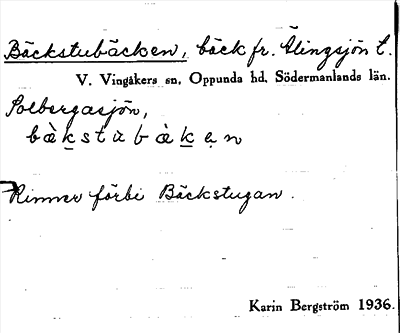 Bäckstubäcken, bäck fr. Älingsjön t.
V. Vingåkers sn, Oppunda hd, Södermanlands län.
Solbergasjön,
bàkstubàkęn
Rinner förbi Bäckstugan.
Karin Bergström 1936.